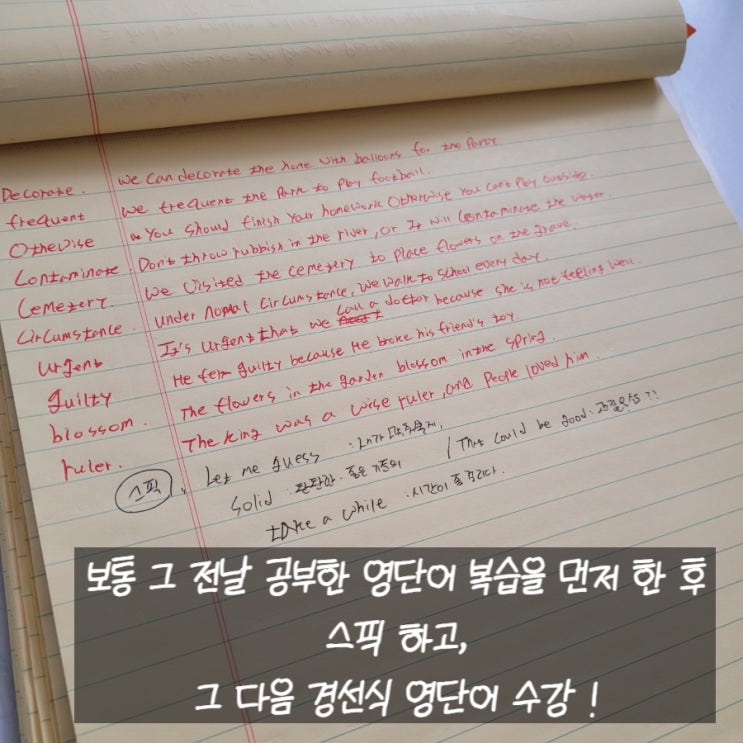 Decorate. We can decorate the home with balloons for the Party
frequent We frequent the Park to Play football.
Othewise You should finish Your homework Otherwise You can't Play outside.
Contaminate. Don't throw rubbish in the river, or It will Contaminate the water.
Cemetery. We Visited the cemetery to Place flowers on the grave.
Circumstance. Under nomal Circumstance, We walk to School every day.
Urgent It's urgent that we call a doctor because she is not feeling well.
guilty He felt guilty because He broke his friend's toy.
blossom. The flowers in the garden blossom in the spring.
ruler. The King was a wise ruler, and People loved him.
스픽. Let me guess : 내가
Solid : 단단한. 좋은 / That could be good.
take a while : 시간이 좀 걸리다.
보통 그 전날 공부한 영단어 복습을 먼저 한 후
스픽 하고,
그 다음 경선식 영단어 수강 !